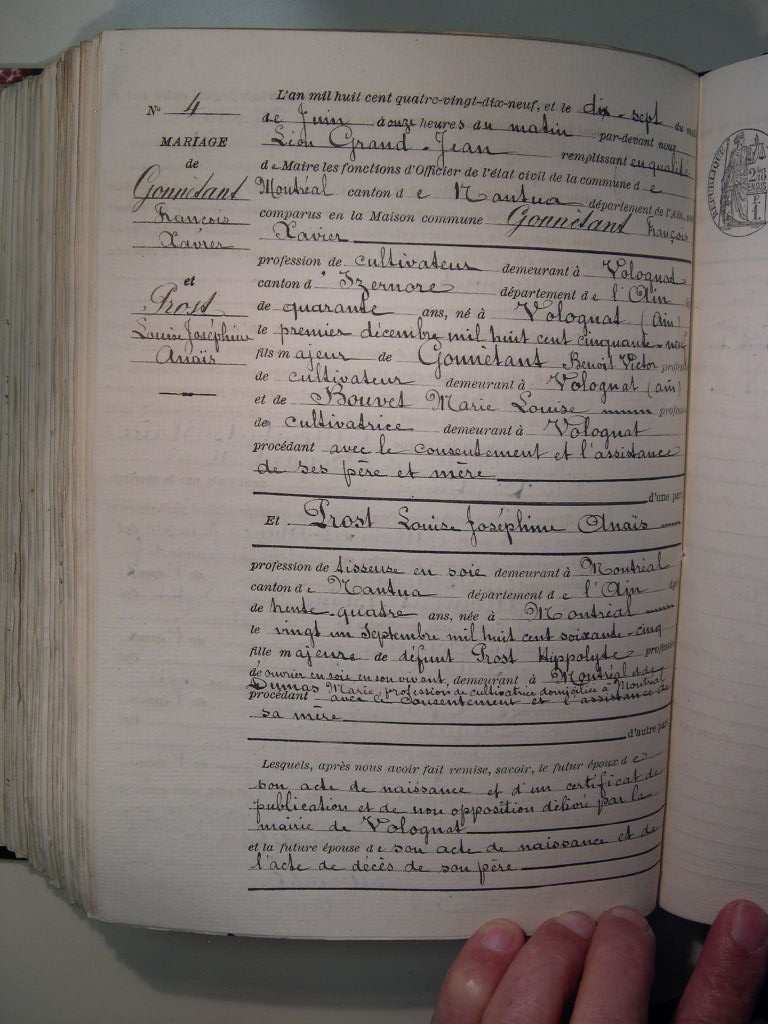 No 4
MARIAGE
de
Gonnétant
François
Xavier
et
Prost
Louise Joséphine
Anaïs
L'an mil huit cent quatre-vingt-dix-neuf, et le dix-sept du mois
de Juin à onze heures du matin par-devant nous
Léon Grand-Jean remplissant en qualité
de Maire les fonctions d'Officier de l'état civil de la commune de
Montréal canton de Nantua département de l'Ain,
comparus en la Maison commune Gonnétant François
Xavier
profession de cultivateur demeurant à Volognat
canton d'Izernore département de l'Ain
de quarante ans, né à Volognat (Ain)
le premier décembre mil huit cent cinquante-neuf
fils majeur de Gonnétant Benoit Victor
de cultivateur demeurant à Volognat (ain)
et de Bouvet Marie Louise
de cultivatrice demeurant à Volognat
procédant avec le consentement et l'assistance
de ses père et mère
d'une par
Et Prost Louise Joséphine Anaïs
profession de tisseuse en soie demeurant à Montréal
canton de Nantua département de l'Ain
de trente-quatre ans, née à Montréal
le vingt un Septembre mil huit cent soixante-cinq
fille majeure de défunt Prost Hippolyte
de ouvrier en soie en son vivant, demeurant à Montréal et de
Dumas Marie, profession de cultivatrice domiciliée à Montréal
procédant avec le consentement et l'assistance de
sa mère
d'autre par
Lesquels, après nous avoir fait remise, savoir, le futur époux de
son acte de naissance et d'un certificat de
publication et de non opposition délivré par la
mairie de Volognat
et la future épouse de son acte de naissance et de
l'acte de décès de son père